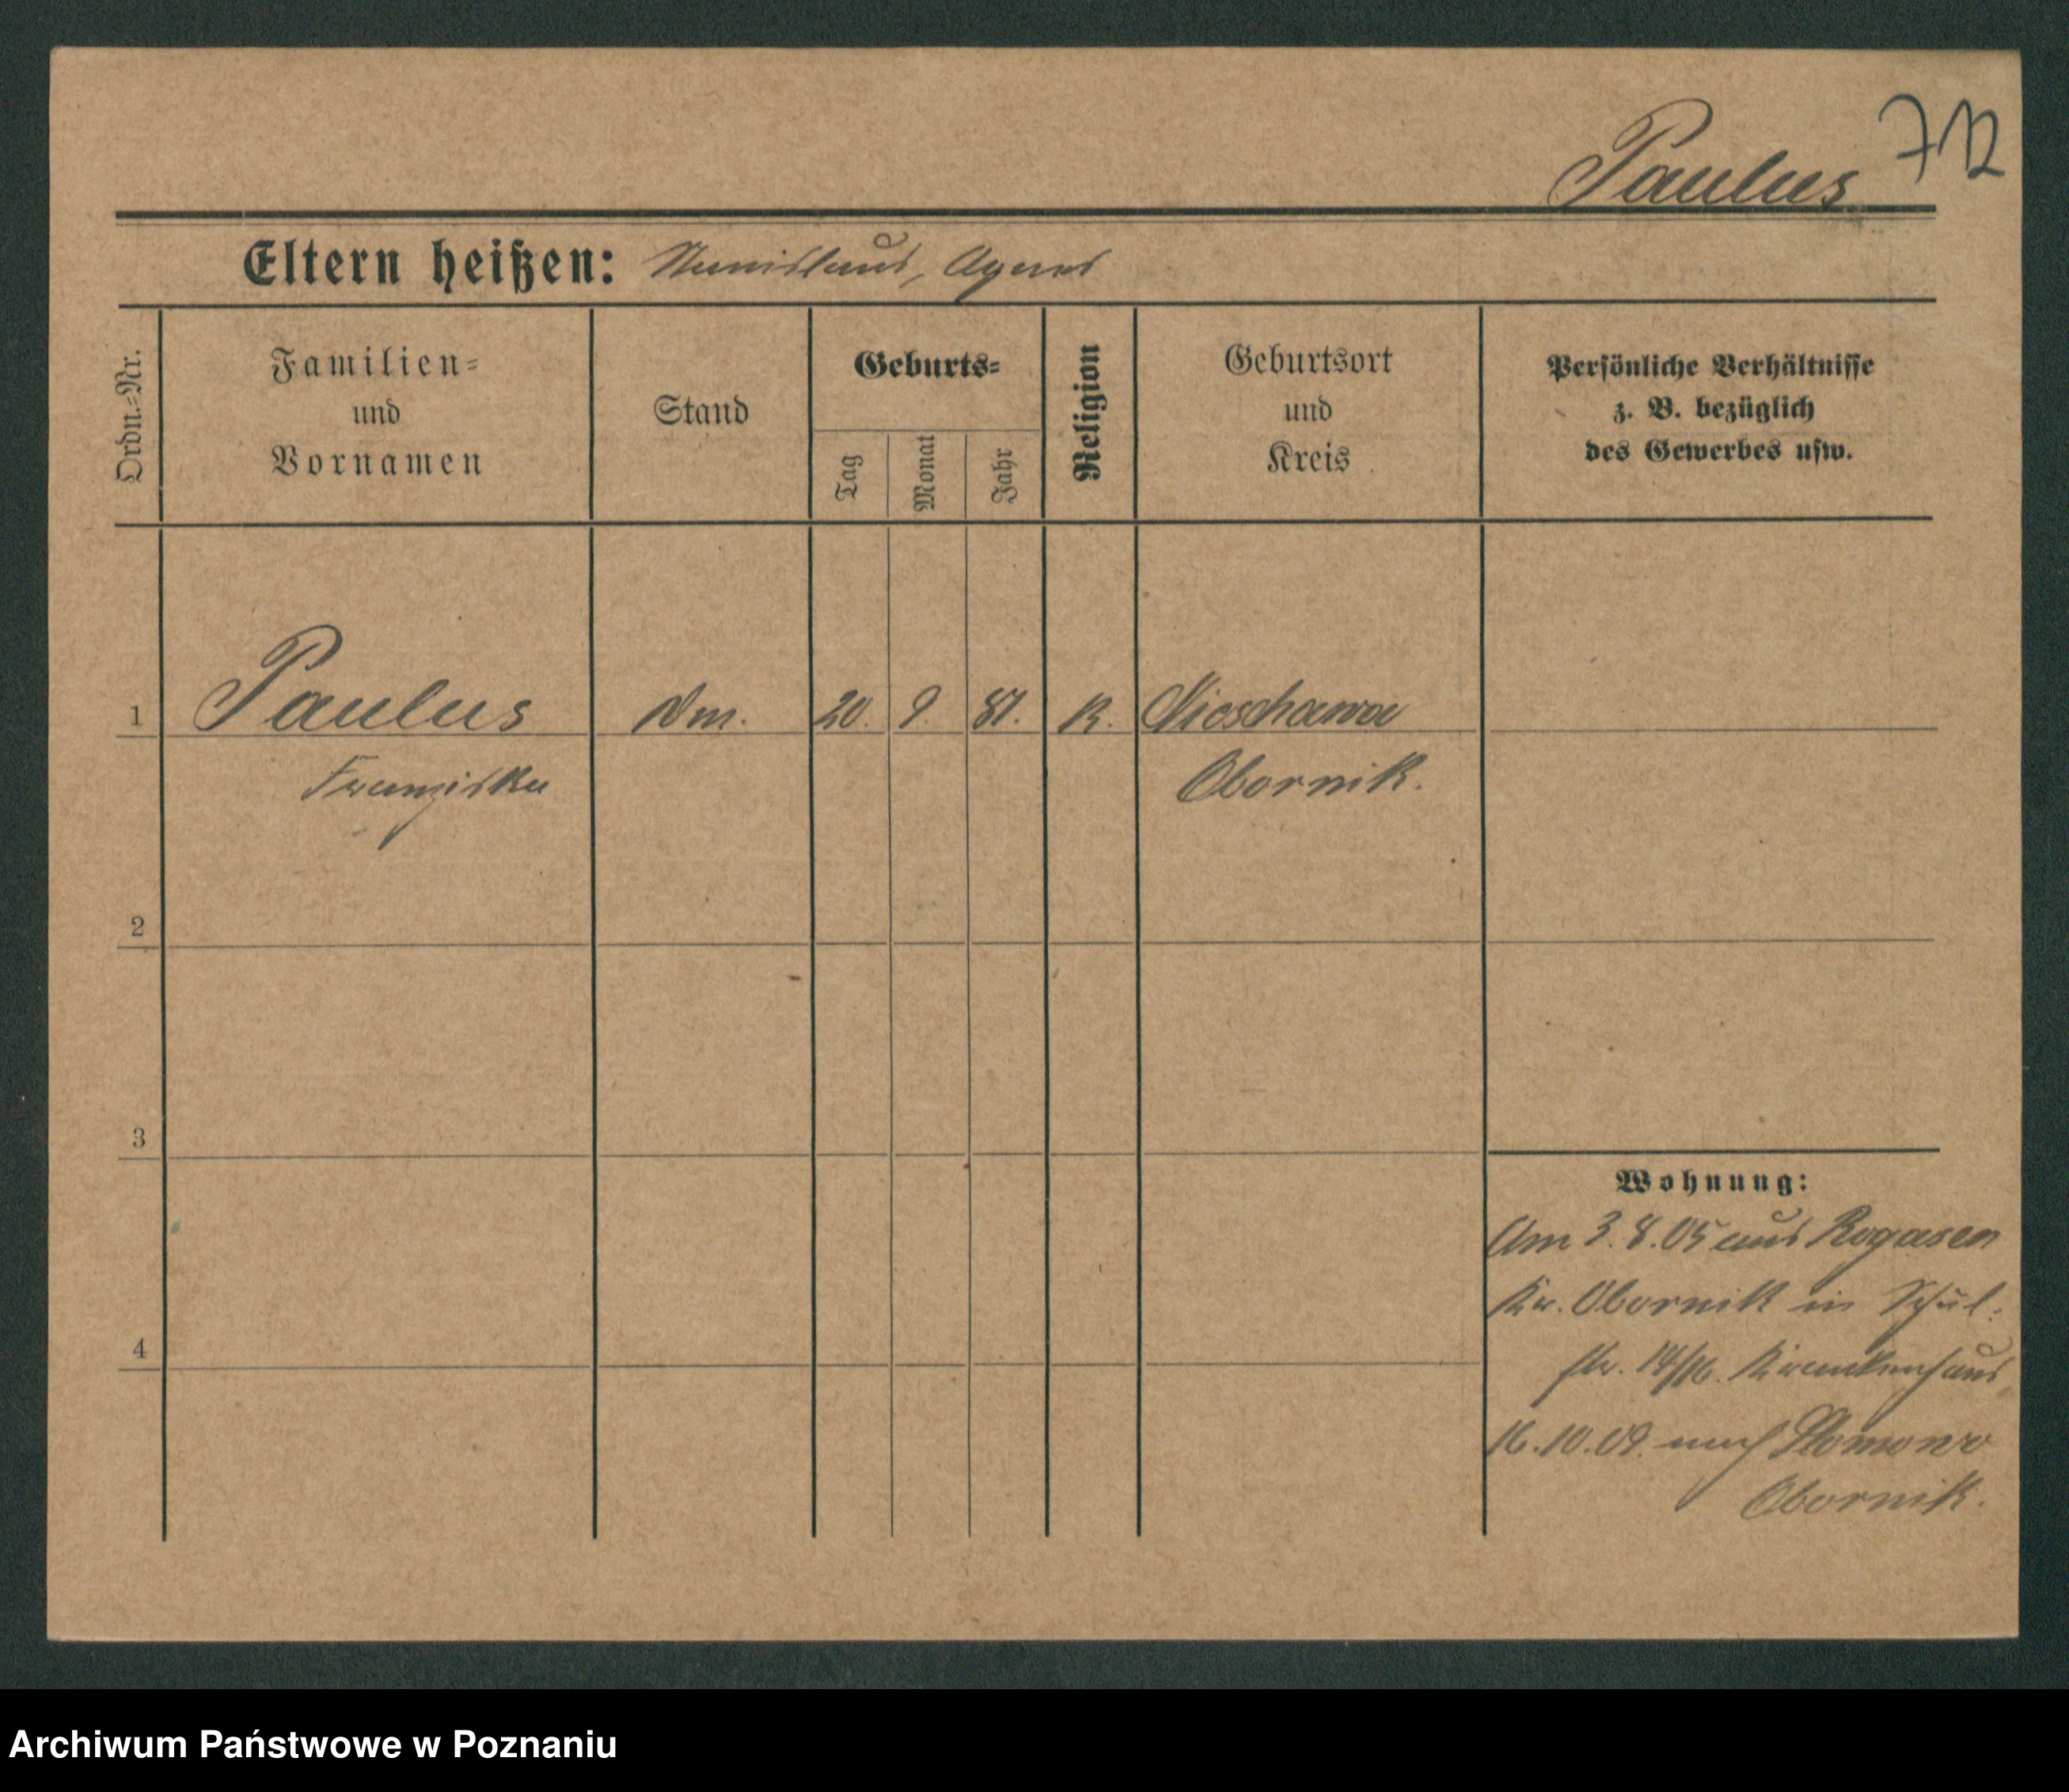 Paulus 712
Eltern heißen: Stanislaus, Agnes
Ordn.-Nr.
Familien-
und
Vornamen
Stand
Geburts-
Tag
Monat
Jahr
Religion
Geburtsort
und
Kreis
Persönliche Verhältnisse
z. B. bezüglich
des Gewerbes usw.
1 Paulus Dm. 20. 9. 81. K. Nieschawa
Franziska Obornik.
2
3
4
Wohnung:
Am 3.8.05 aus Rogasen
Kr. Obornik in Schul-
str. 14/16. Krankenhaus
16.10.09. nach Slomowo
Obornik.
Archiwum Państwowe w Poznaniu